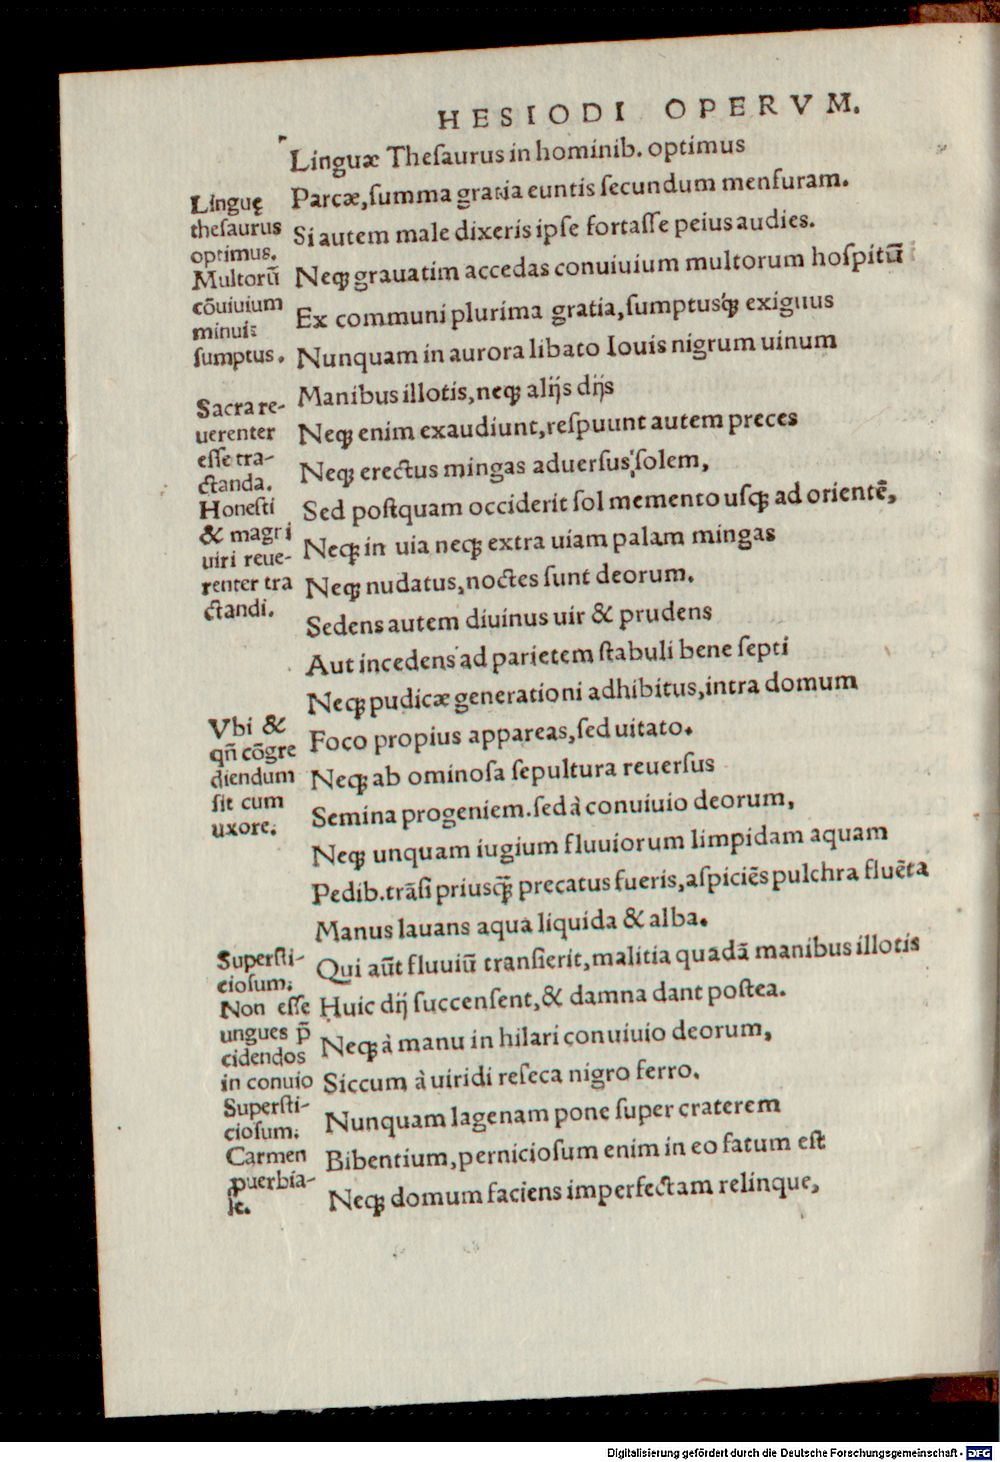 HESIODI OPERVM.
Linguæ Theſaurus in hominib. optimus
Parcæ, ſumma gratia euntis ſecundum menſuram.
Si autem male dixeris ipſe fortaſſe peius audies.
Neqꝫ grauatim accedas conuiuium multorum hoſpitū
Ex communi plurima gratia, ſumptusqꝫ exiguus
Nunquam in aurora libato Iouis nigrum uinum
Manibus illotis, neqꝫ alijs dijs
Neqꝫ enim exaudiunt, reſpuunt autem preces
Neqꝫ erectus mingas aduerſus ſolem,
Sed poſtquam occiderit ſol memento uſqꝫ ad orientē,
Neqꝫ in uia neqꝫ extra uiam palam mingas
Neqꝫ nudatus, noctes ſunt deorum.
Sedens autem diuinus uir & prudens
Aut incedens ad parietem ſtabuli bene ſepti
Neqꝫ pudicæ generationi adhibitus, intra domum
Foco propius appareas, ſed uitato.
Neqꝫ ab ominoſa ſepultura reuerſus
Semina progeniem. ſed à conuiuio deorum,
Neqꝫ unquam iugium fluuiorum limpidam aquam
Pedib. trāſi priusqꝫ̄ precatus fueris, aſpiciēs pulchra fluēta
Manus lauans aqua liquida & alba.
Qui aūt fluuiū tranſierit, malitia quadā manibus illotis
Huic dij ſuccenſent, & damna dant poſtea.
Neqꝫ à manu in hilari conuiuio deorum,
Siccum à uiridi reſeca nigro ferro.
Nunquam lagenam pone ſuper craterem
Bibentium, pernicioſum enim in eo fatum eſt
Neqꝫ domum faciens imperfectam relinque,
Linguę
theſaurus
optimus.
Multorū
cōuiuium
minuit
ſumptus.
Sacra re-
uerenter
eſſe tra-
ctanda.
Honeſti
& magri
uiri reue-
renter tra
ctandi.
Vbi &
qn̄ cōgre
diendum
ſit cum
uxore.
Superſti-
cioſum.
Non eſſe
ungues p̄
cidendos
in conuio
Superſti-
cioſum.
Carmen
ꝓuerbia-
le.
Digitalisierung gefördert durch die Deutsche Forschungsgemeinschaft - DFG